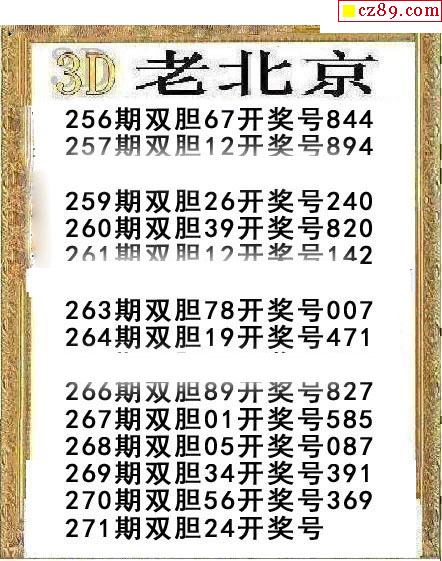 cz89.com
3D 老北京
256期双胆67开奖号844
257期双胆12开奖号894
259期双胆26开奖号240
260期双胆39开奖号820
261期双胆12开奖号142
263期双胆78开奖号007
264期双胆19开奖号471
266期双胆89开奖号827
267期双胆01开奖号585
268期双胆05开奖号087
269期双胆34开奖号391
270期双胆56开奖号369
271期双胆24开奖号